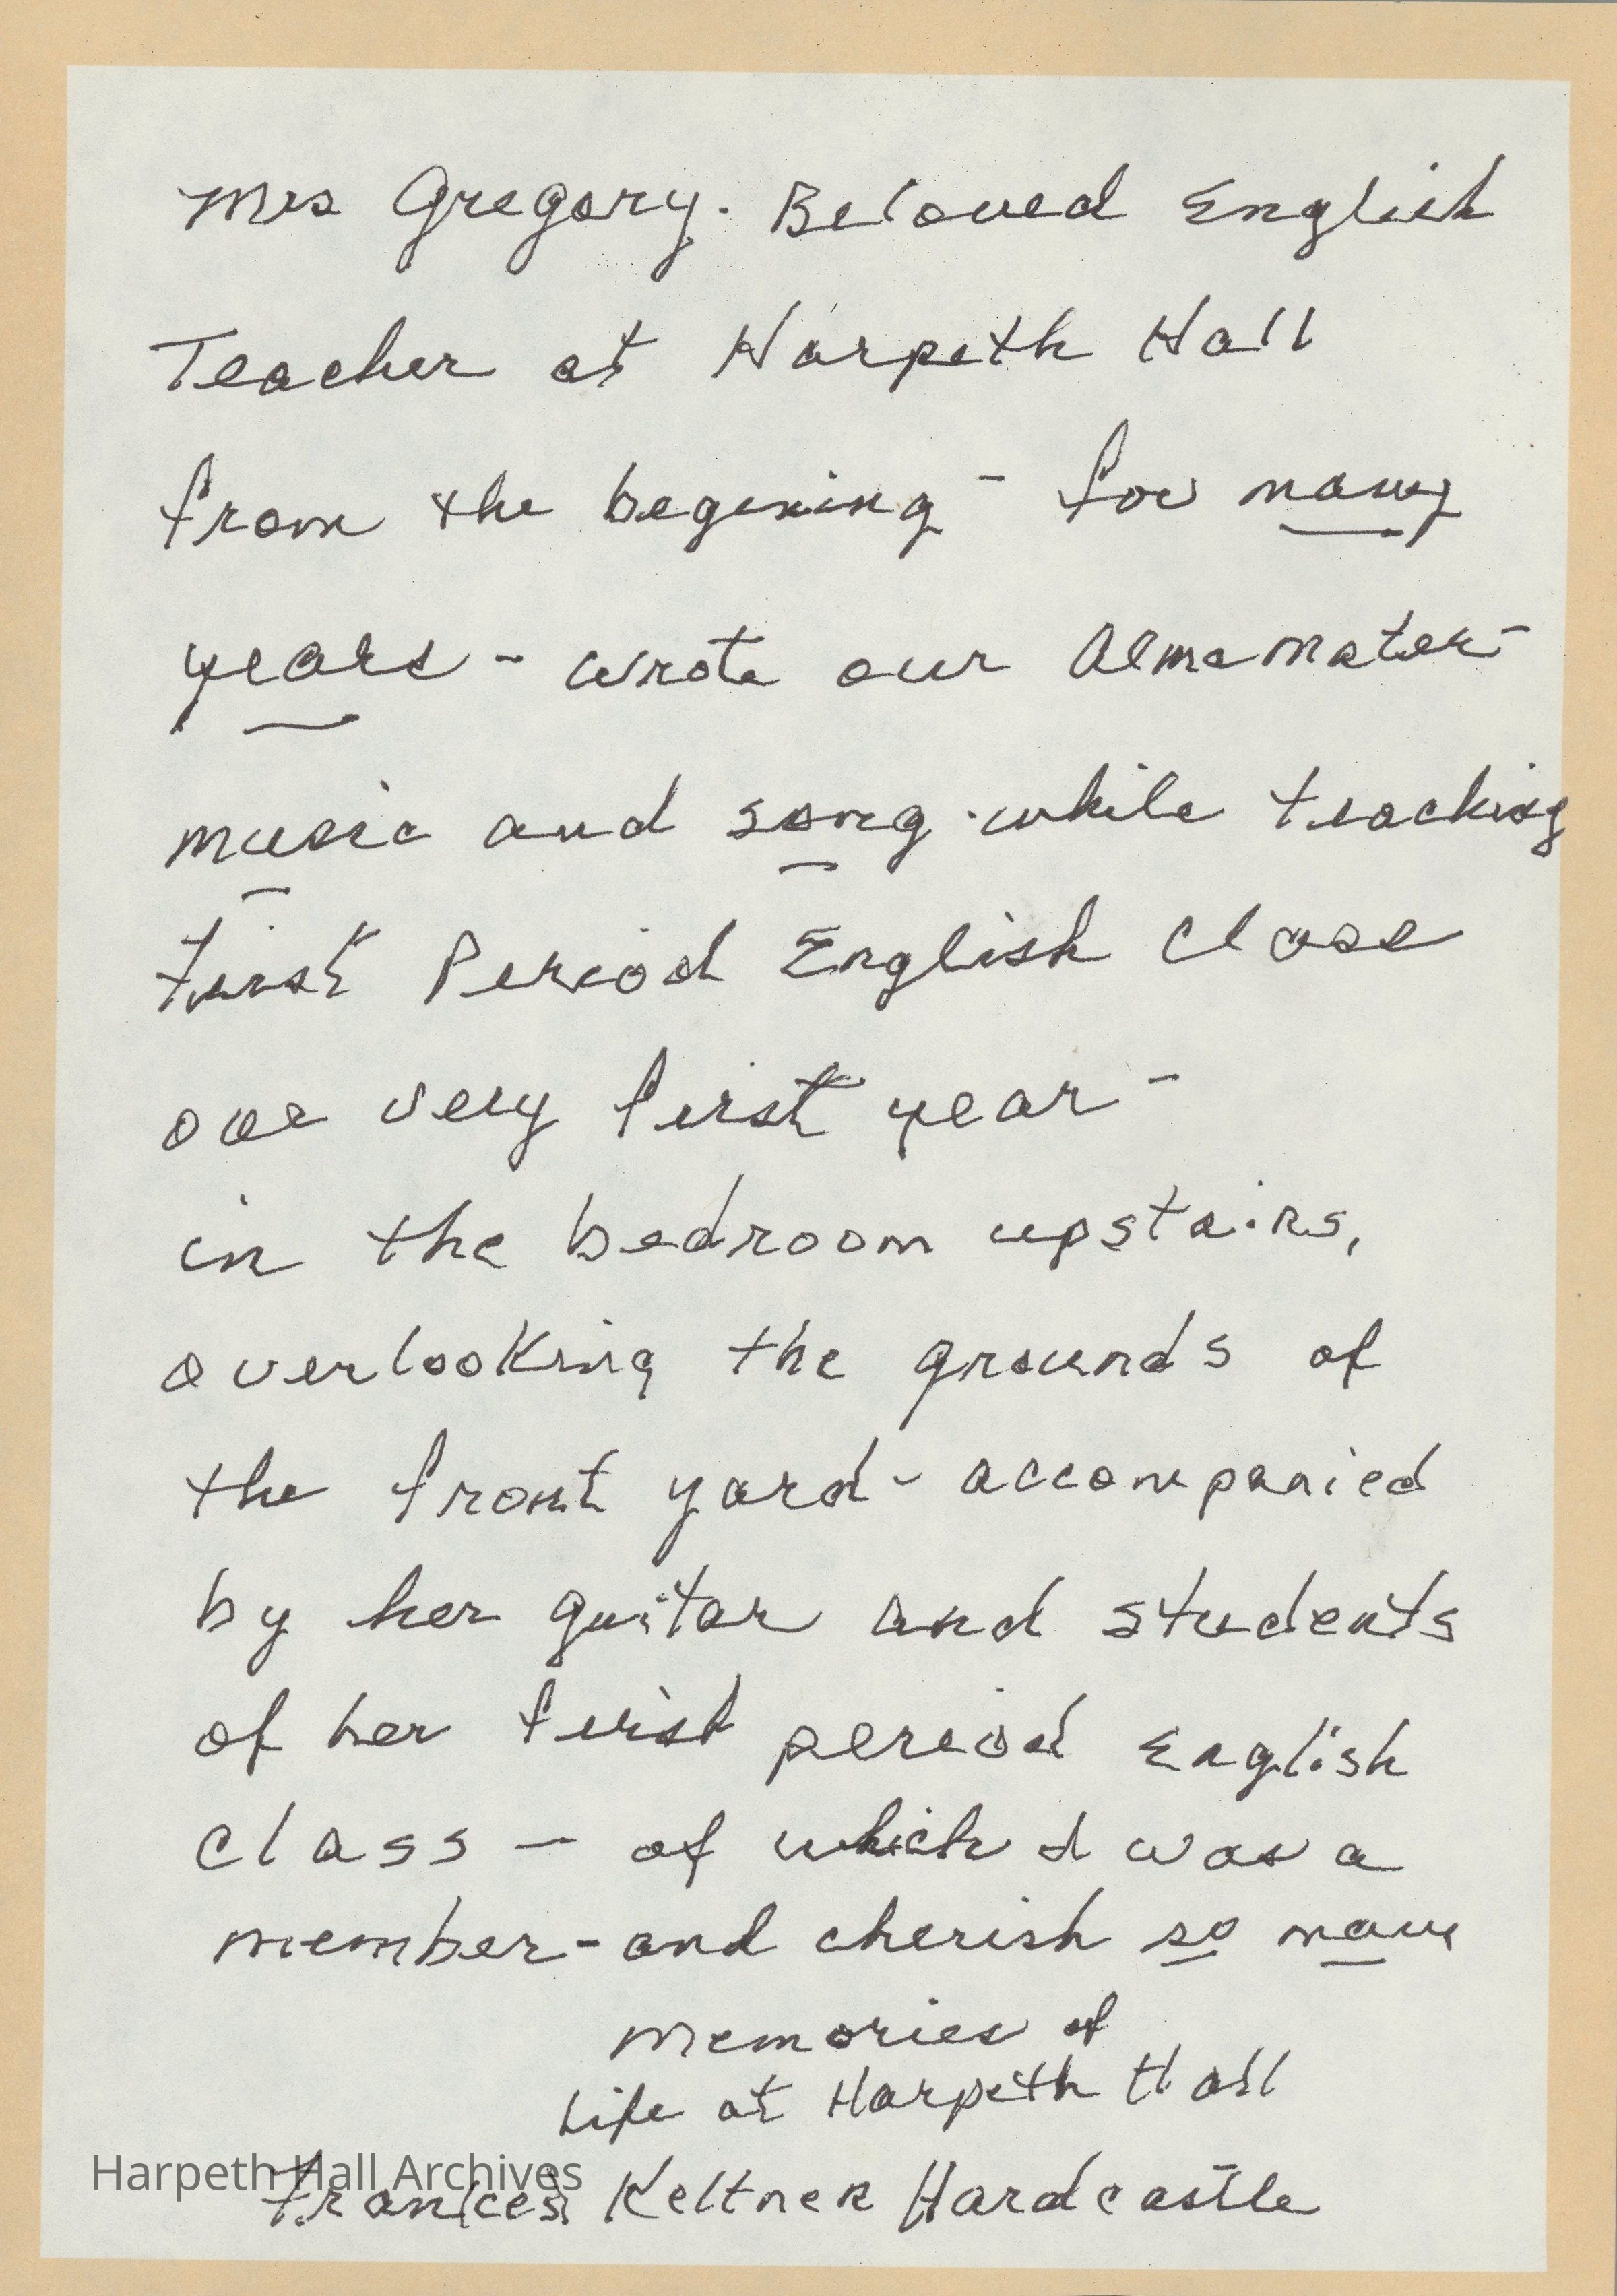 Mrs Gregory. Beloved English
Teacher at Harpeth Hall
from the begining - for many
years - wrote our Alma Mater -
music and song - while teaching
first Period English Class
our very first year -
in the bedroom upstairs,
overlooking the grounds of
the front yard - accompanied
by her guitar and students
of her first period English
class - of which I was a
member - and cherish so many
memories of
Life at Harpeth Hall
Harpeth Hall Archives
Frances Keltner Hardcastle